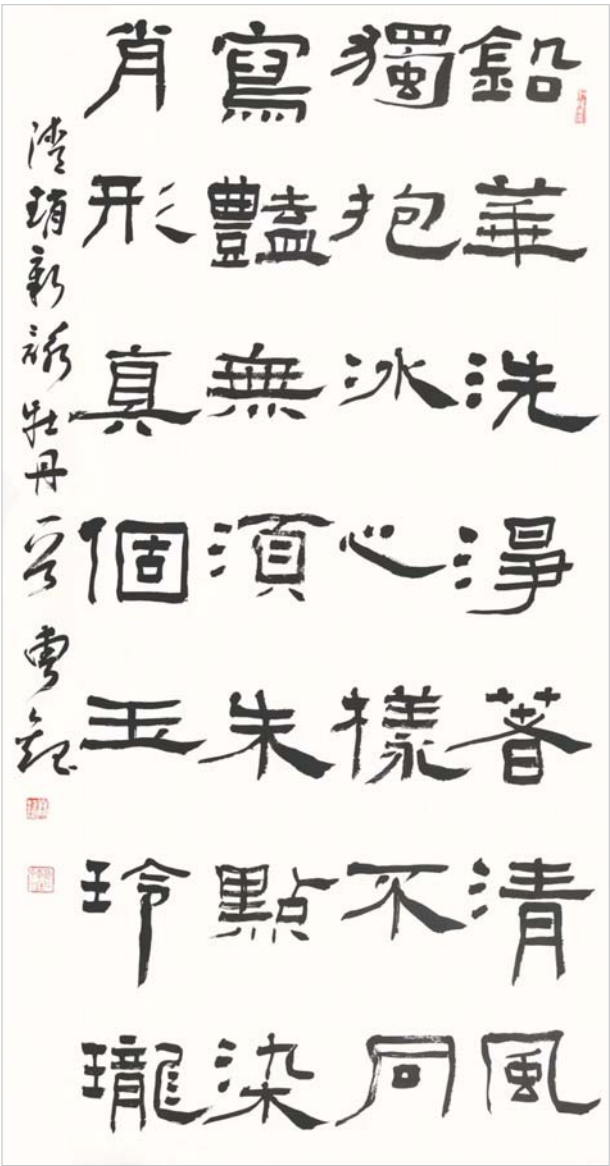 鉛華洗淨著清風
獨抱冰心樣不同
寫豔無湏朱點染
肖形真個玉玲瓏
新詠牡丹一首 曹